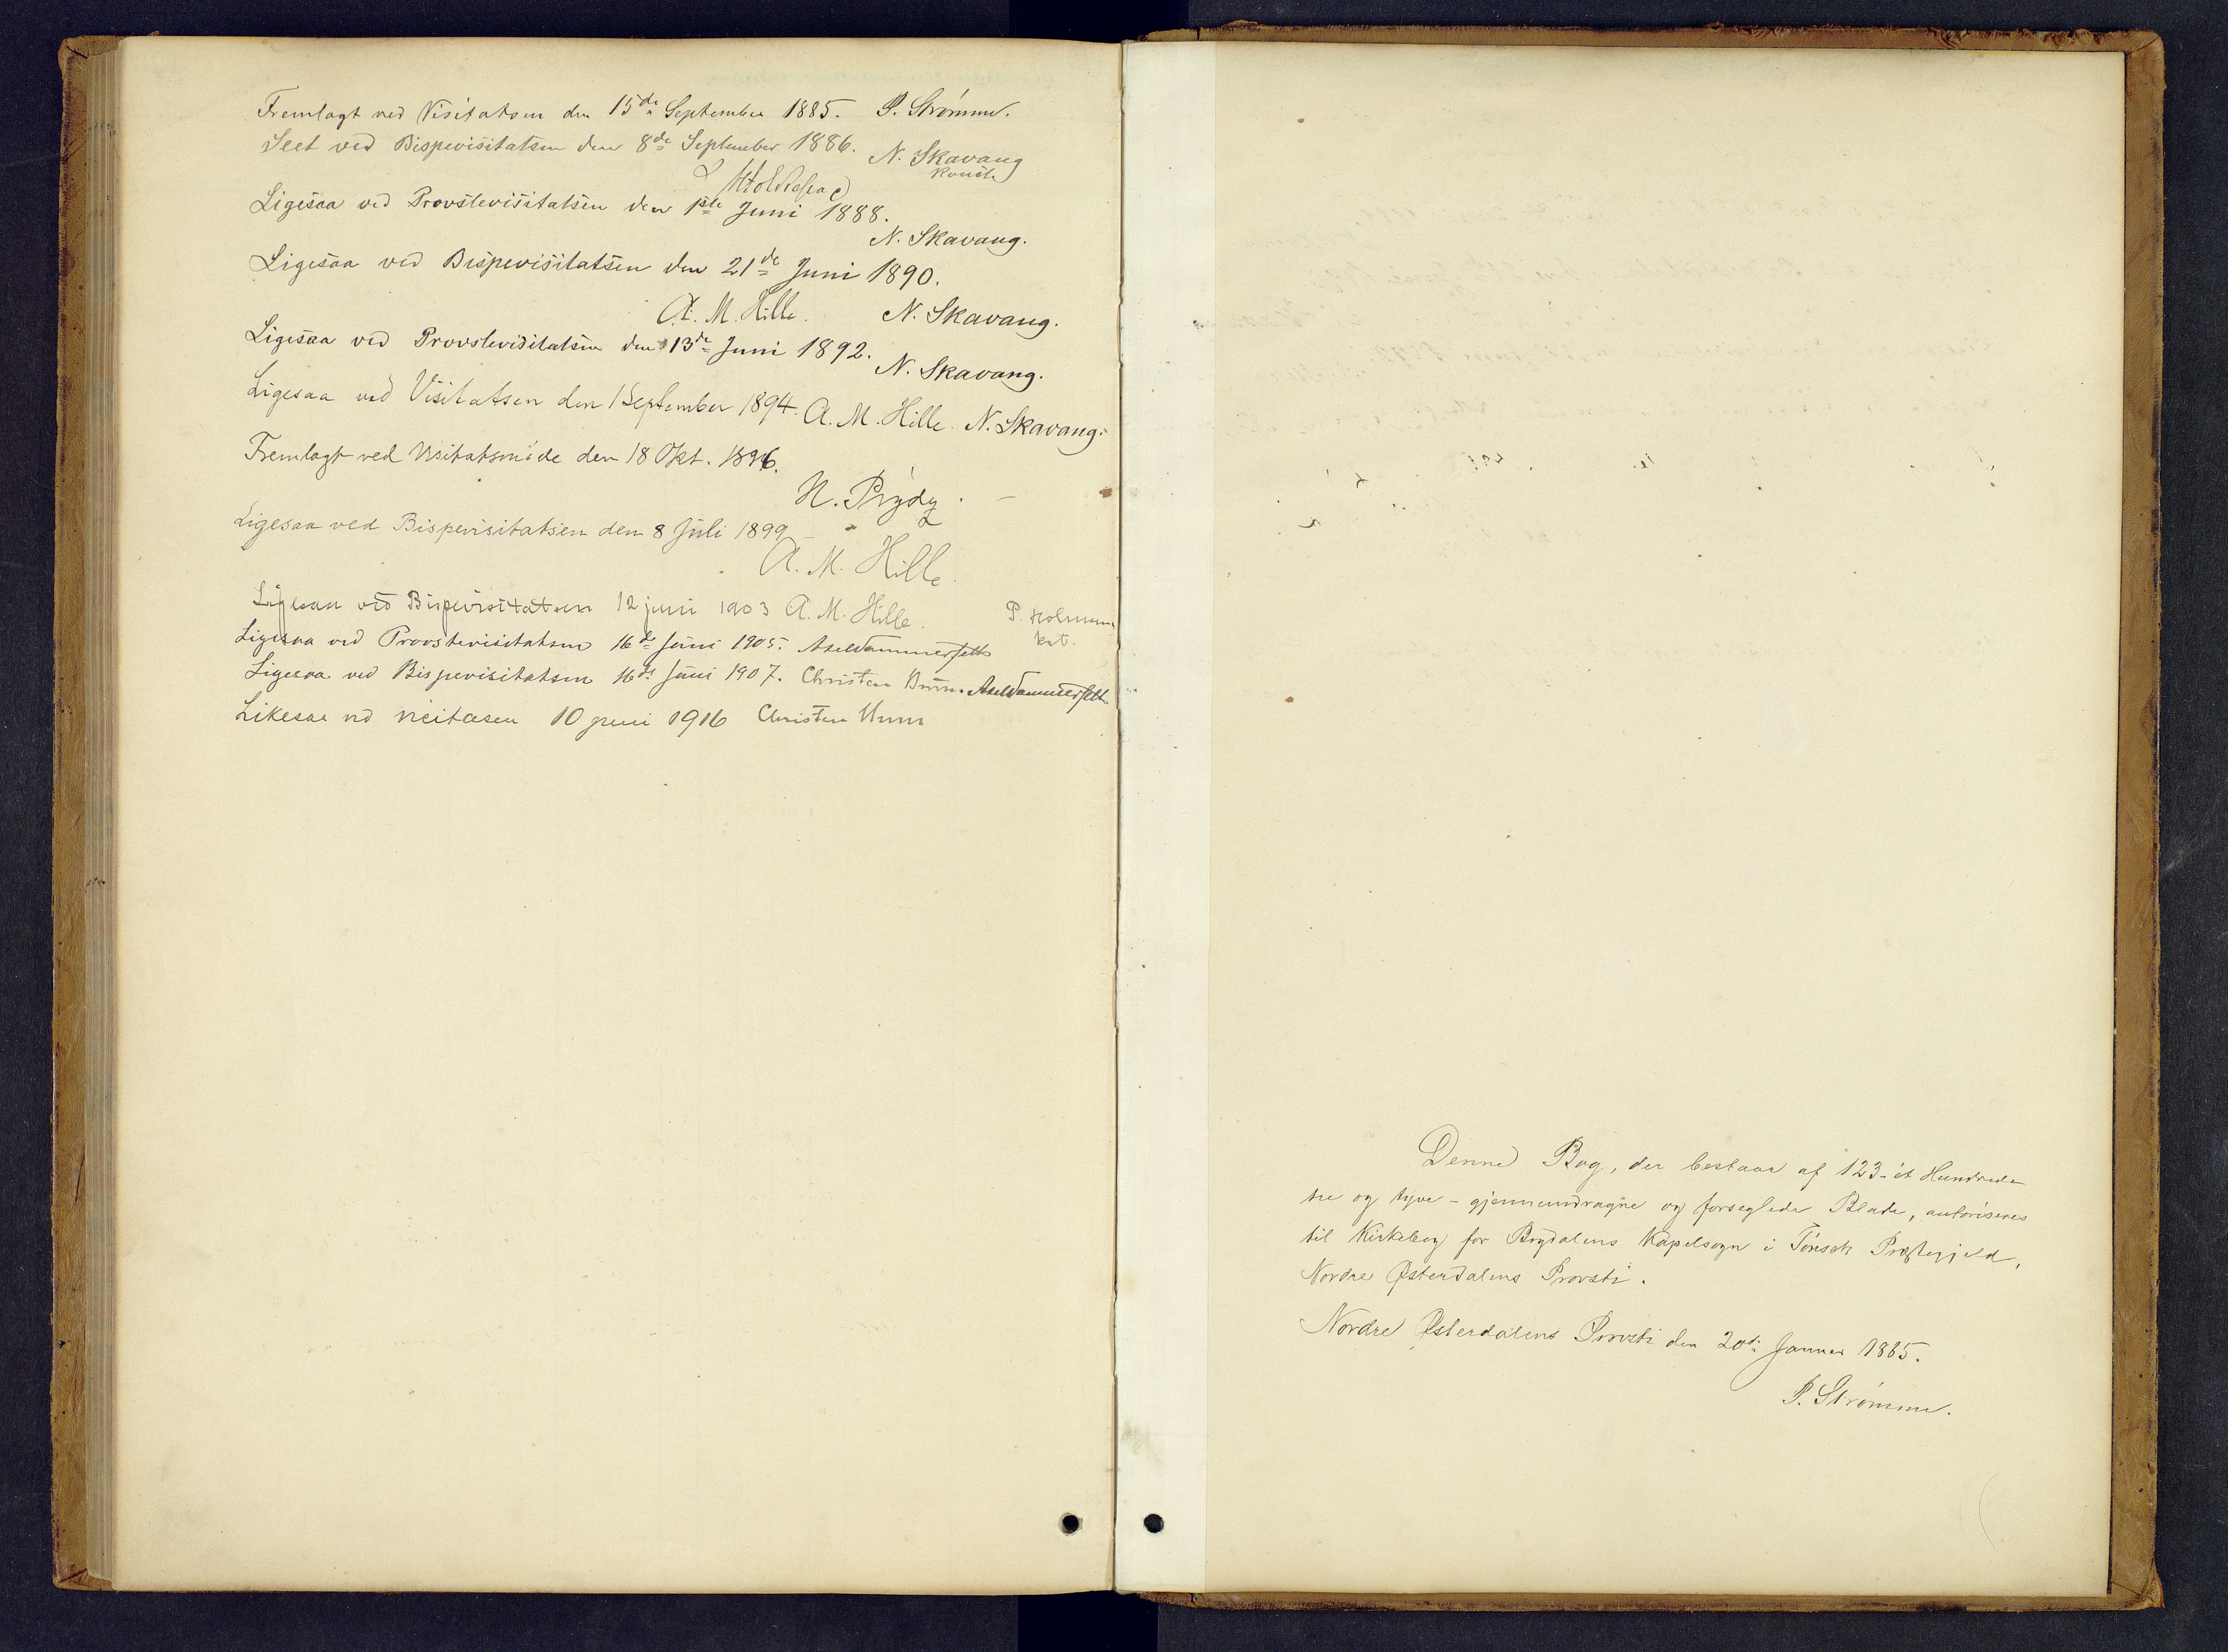 Fremlagt ved Visitatsen den 15de September 1885. P. Strømme.
Seet ved Bispevisitatsen den 8de September 1886. N. Skavang
Konst.
Ligesaa ved Provstevisitatsen den 1ste Juni 1888.
N. Skavang.
Ligesaa ved Bispevisitatsen den 21de Juni 1890.
A. M. Hille. N. Skavang.
Ligesaa ved Provstevisitatsen den 13de Juni 1892.
N. Skavang.
Ligesaa ved Visitatsen den 1 September 1894. A. M. Hille. N. Skavang.
Fremlagt ved Visitatsmøde den 18 Okt. 1896.
N. Prydz.
Ligesaa ved Bispevisitatsen den 8 Juli 1899
A. M. Hille.
Ligesaa ved Bispevisitatsen 12 juni 1903 A. M. Hille. P.
Ligesaa ved Provstevisitatsen 16de Juni 1905. Axel Sammerfelt
Ligesaa ved Bispevisitatsen 16de Juni 1907. Christen Brun. Axel Sammerfelt
Likesaa ved visitasen 10 juni 1916 Christen Brun
Denne Bog, der bestaar af 123 - ét Hundrede
tre og tyve - gjennemdragne og forseglede Blade, autoriseres
til Kirkebog for Brydalens Kapelsogn i Tønset Præstegjeld,
Nordre Østerdalens Provsti.
Nordre Østerdalens Provsti den 20de Januar 1885.
P. Strømme.